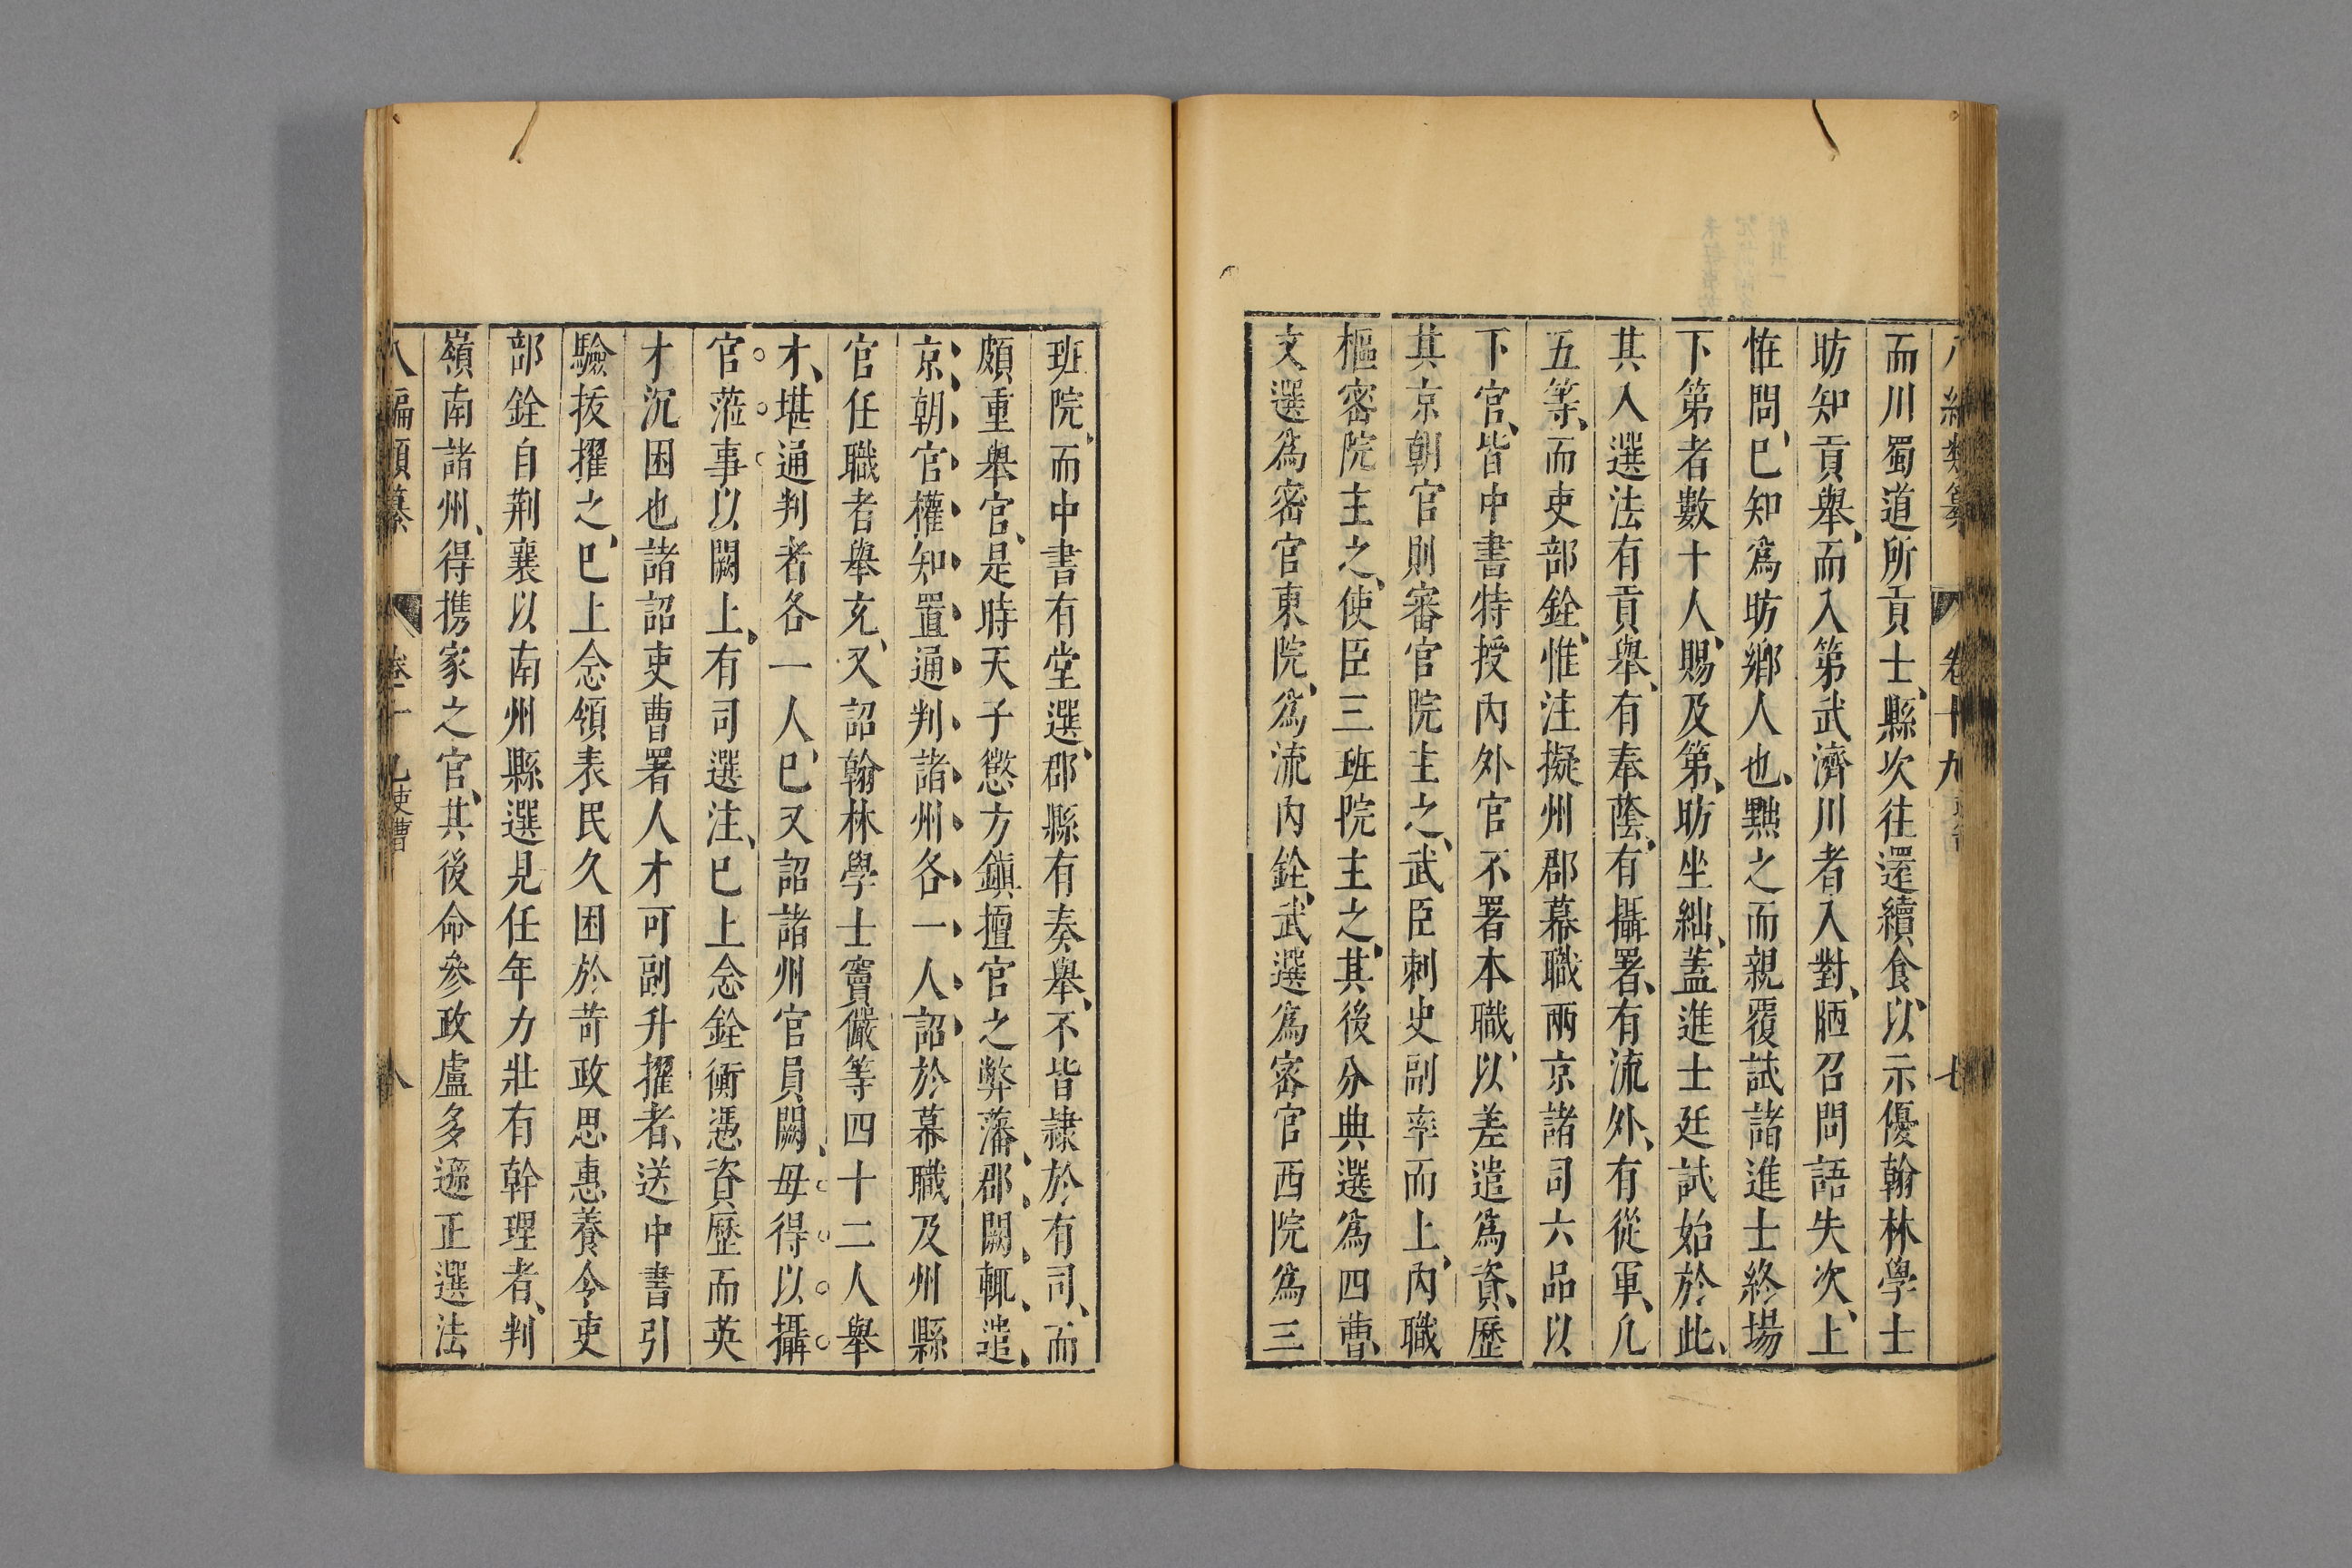 八編類纂 卷十九 七
而川蜀道所貢士、縣次往還續食、以示優翰林學士
昉知貢舉、而入第武濟川者入對、陋召問語失次、上
恠問、已知爲昉鄉人也、黜之而親覆試諸進士終場
下第者數十人、賜及第、昉坐絀、蓋進士廷試始於此、
其入選法有貢舉、有奉蔭、有攝署、有流外、有從軍、凡
五等、而吏部銓、惟注擬州郡幕職兩京諸司六品以
下官、皆中書特授內外官不署本職、以差遣爲資、歷
其京朝官則審官院主之、武臣刺史副率而上、內職
樞密院主之、使臣三班院主之、其後分典選爲四曹、
文選爲密官東院、爲流內銓、武選爲審官西院爲三
班院、而中書有堂選、郡縣有奏舉、不皆隷於有司、而
頗重舉官、是時天子懲方鎮擅官之弊藩郡闕、輒遣
京朝官權知置通判諸州各一人、詔於幕職及州縣
官任職者舉充、又詔翰林學士竇儼等四十二人舉
才、堪通判者各一人、已又詔諸州官員闕、毋得以攝
官蒞事以闕上、有司選注、已上念銓衡憑資歷而英
才沉困也諸詔吏曹署人才可副升擢者、送中書引
驗拔擢之、已上念領表民久困於苛政思惠養令吏
部銓自荆襄以南州縣選見任年力壯有幹理者、判
嶺南諸州、得携家之官、其後命參政盧多遜正選法
八編類纂 卷十九 吏曹 八